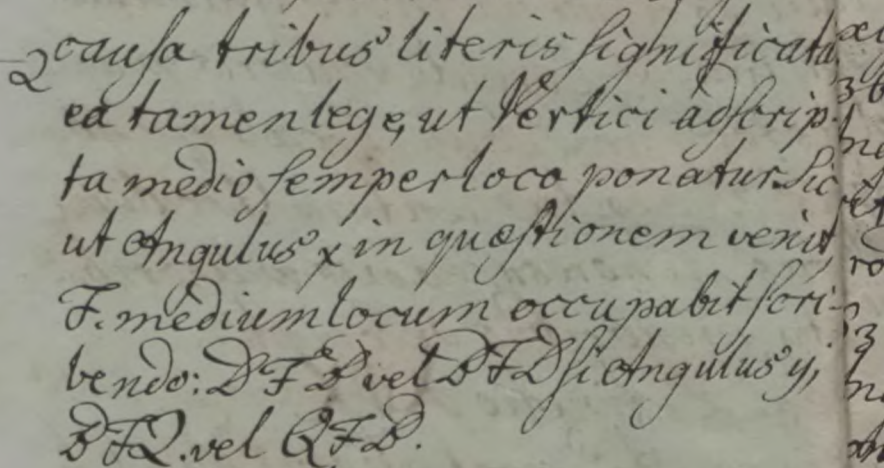 causa tribus literis significata
ea tamen lege, ut Vertici adscrip-
ta medio semper loco ponatur. Sic
ut Angulus x in quæstionem venit,
F. medium locum occupabit scri-
bendo: DFB vel BFD si Angulus y,
BFQ. vel QFB.